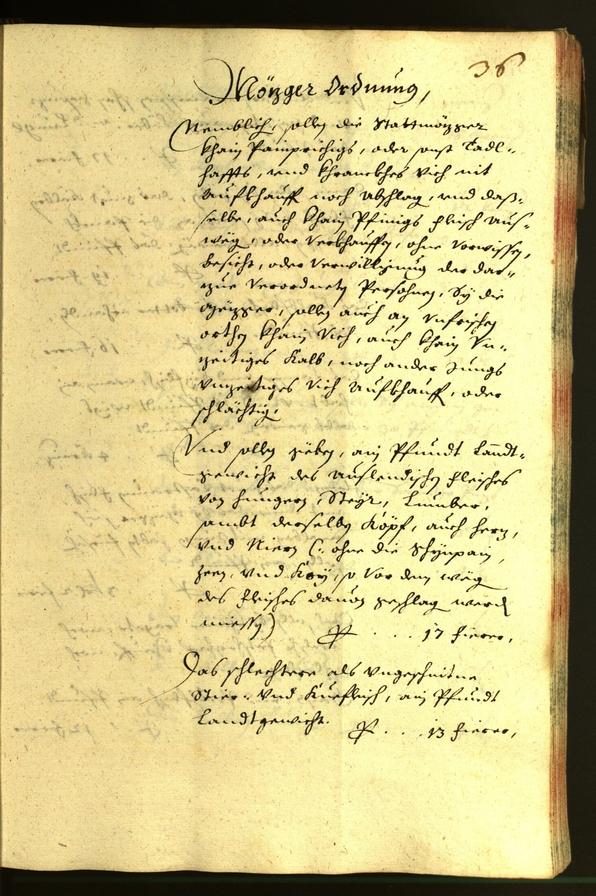 36
Mözger Ordnung,
Nemblich, sollen die Stattmözger
khain Painprichigs, oder sonst Tadl-
haffts, vnd khranckhes Vich nit
Aufkhauff noch abschlag, vnd das-
selbe, auch khain Pfinigs fleisch aus-
weg, oder verkhauffen, ohne vorwissen,
besicht, oder verwilligung der dar-
zue verordneten Persohnen, Sy die
Mezger, sollen auch an Vnfrischen
orthen khain Vich, auch khain Vn-
zeitiges Kalb, noch ander Jungs
vnzeitiges Vich aufkhauff, oder
schlächtig.
Vnd sollen geben, ain Pfundt Landt-
gewicht des auslendischen fleisches
von hungern, Steyr,
sambt derselben Köpf, auch herz,
vnd Niern (: ohne die
vnd so vor dem weg
des fleisches dauon geschlag werden
miessen) P . . . . 17 fierer,
Das schlechtere als vngeschnitne
Stier- vnd Kuefleisch, ain Pfundt
Landtgewicht. P . . . 13 fierer,